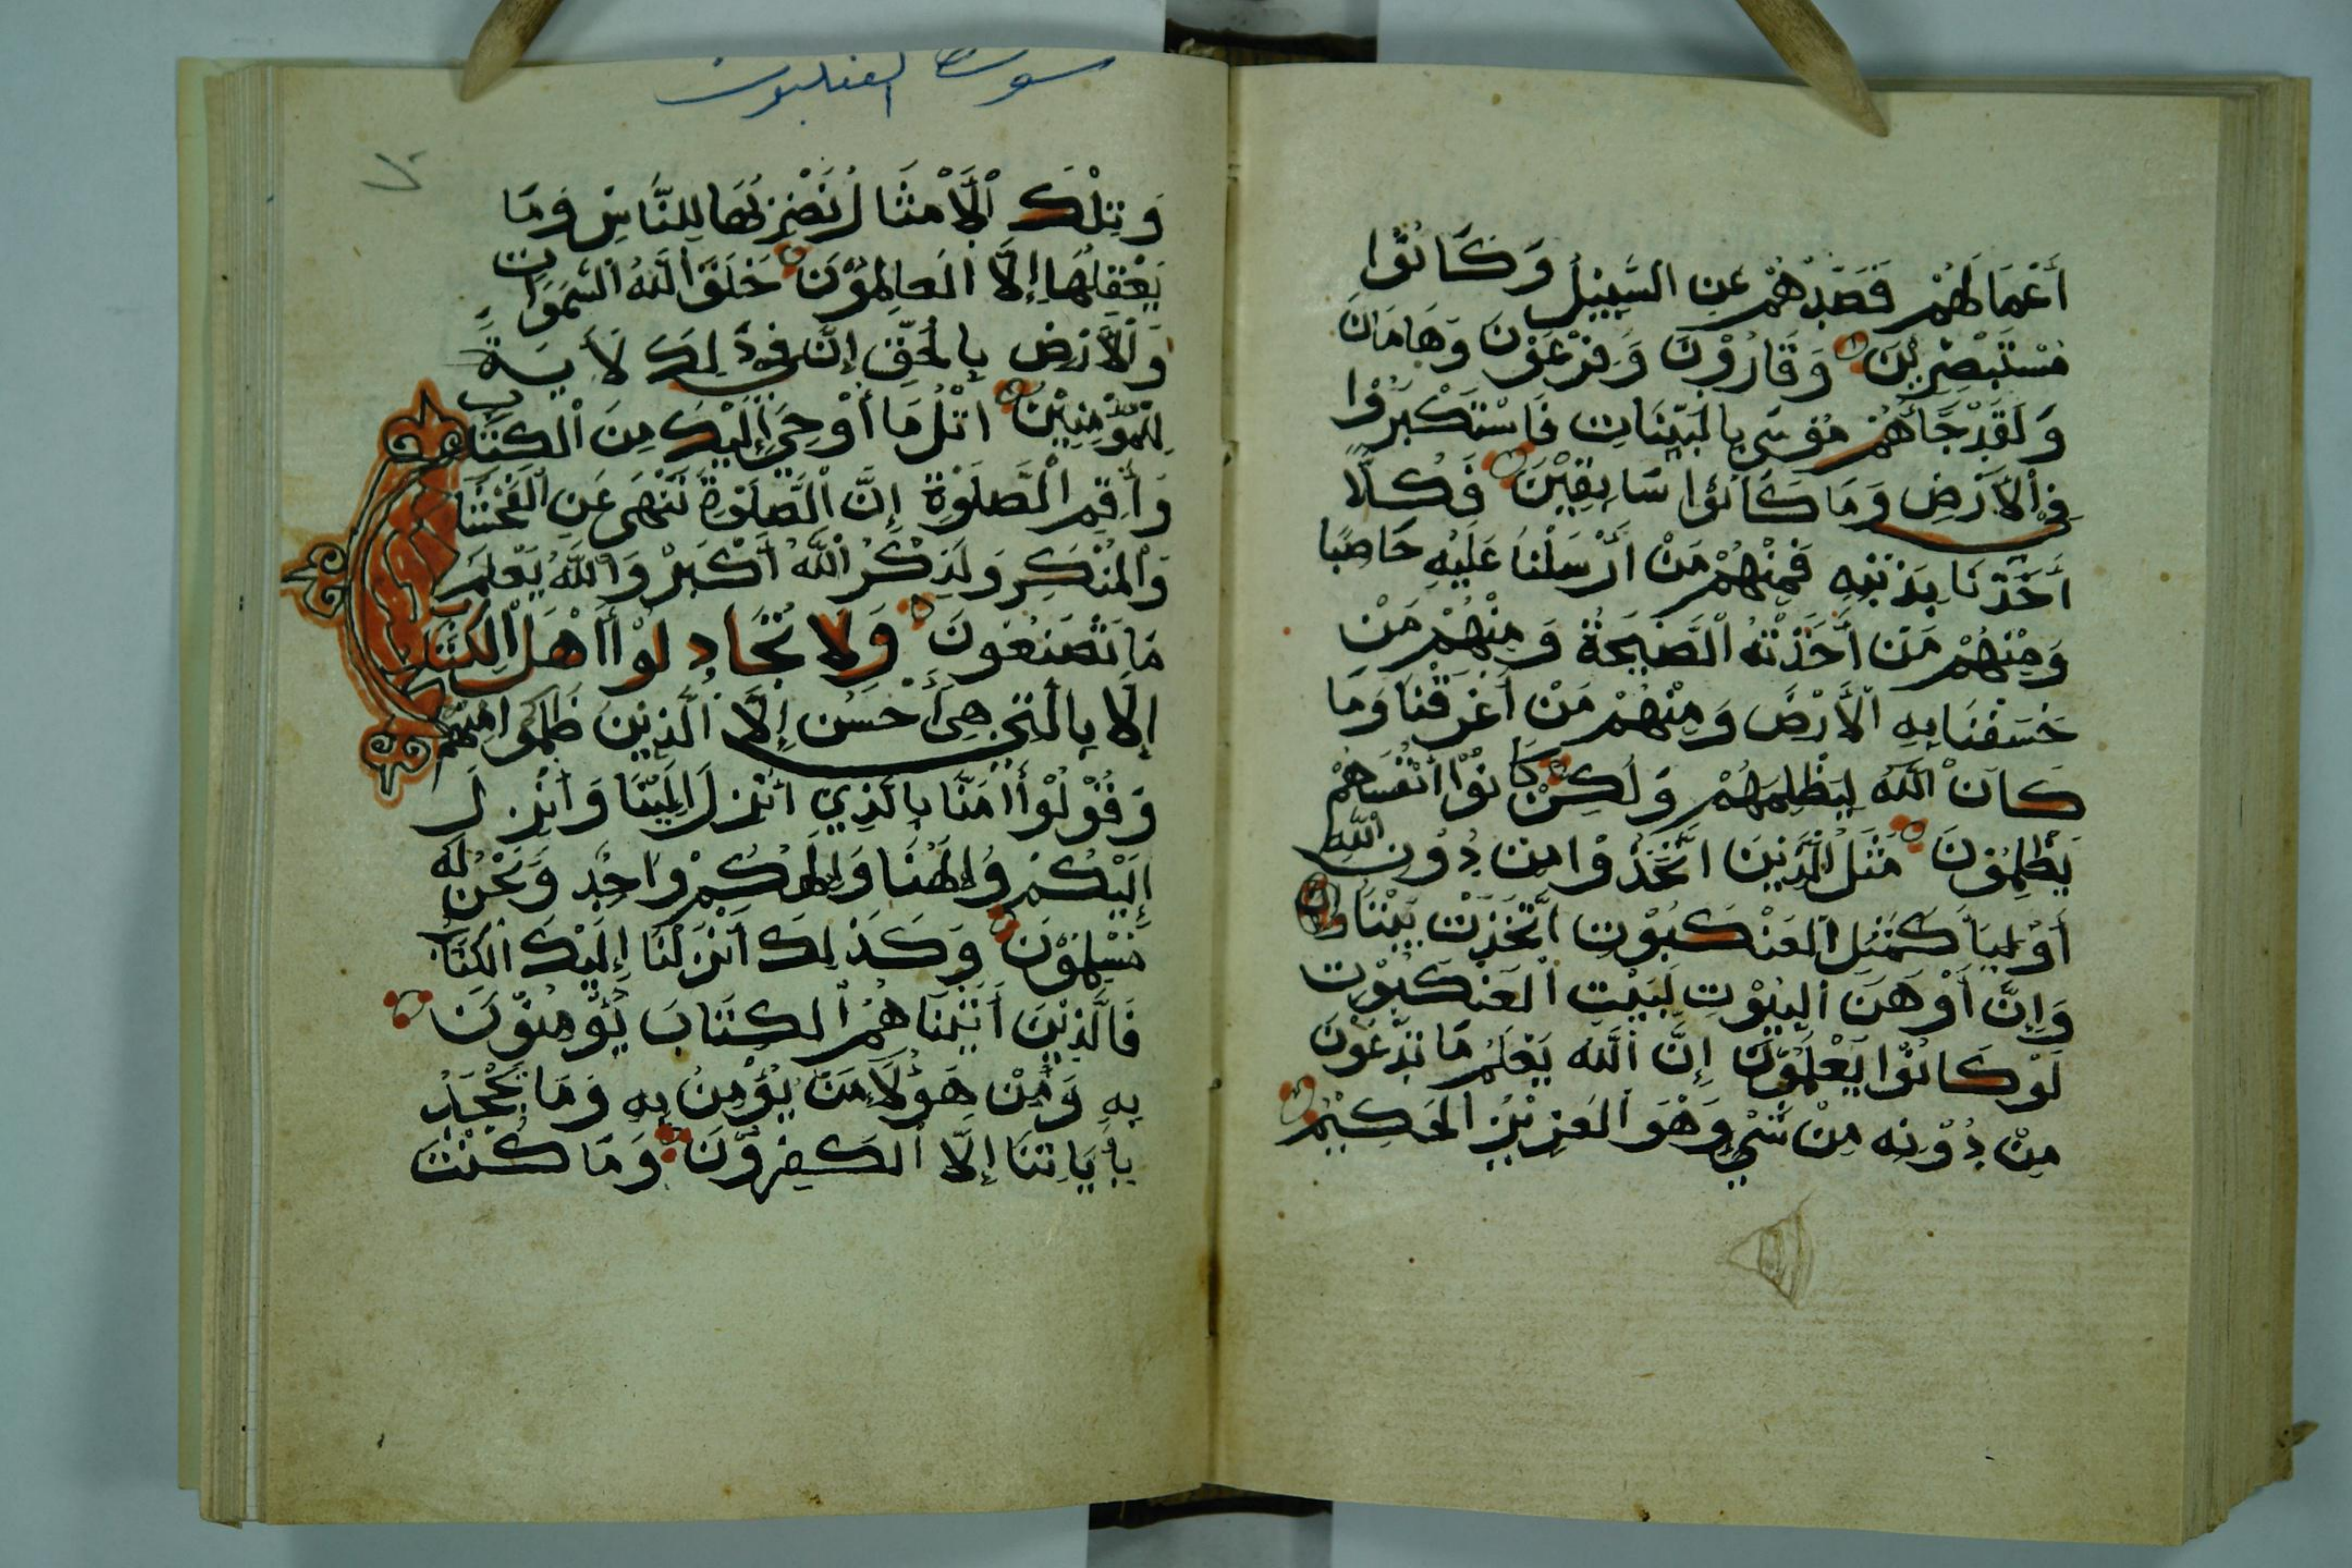 أَعْمَالَهُمْ فَصَدَّهُمْ عَنِ السَّبِيْلِ وَكَانُوْا
مُسْتَبْصِرِيْنَ وَقَارُوْنَ وَفِرْعَوْنَ وَهَامَانَ
وَلَقَدْ جَآءَهُمْ مُوْسَى بِالْبَيِّنَاتِ فَاسْتَكْبَرُوْا
فِي الْأَرْضِ وَمَا كَانُوْا سَابِقِيْنَ فَكُلًّا
أَخَذْنَا بِذَنْبِهِ فَمِنْهُمْ مَنْ أَرْسَلْنَا عَلَيْهِ حَاصِبًا
وَمِنْهُمْ مَنْ أَخَذَتْهُ الصَّيْحَةُ وَمِنْهُمْ مَنْ
خَسَفْنَا بِهِ الْأَرْضَ وَمِنْهُمْ مَنْ أَغْرَقْنَا وَمَا
كَانَ اللَّهُ لِيَظْلِمَهُمْ وَلَكِنْ كَانُوْا أَنْفُسَهُمْ
يَظْلِمُوْنَ مَثَلُ الَّذِيْنَ اتَّخَذُوْا مِنْ دُوْنِ اللَّهِ
أَوْلِيَآ كَمَثَلِ الْعَنْكَبُوْتِ اتَّخَذَتْ بَيْتًا
وَإِنَّ أَوْهَنَ الْبُيُوْتِ لَبَيْتُ الْعَنْكَبُوْتِ
لَوْ كَانُوْا يَعْلَمُوْنَ إِنَّ اللَّهَ يَعْلَمُ مَا تَدْعُوْنَ
مِنْ دُوْنِهِ مِنْ شَيْءٍ وَهْوَ الْعَزِيْزُ الْحَكِيْمُ
سورة العنكبوت
وَتِلْكَ الْأَمْثَالُ نَضْرِبُهَا لِلنَّاسِ وَمَا
يَعْقِلُهَا إِلَّا الْعَالِمُوْنَ خَلَقَ اللَّهُ السَّمَوَاتِ
وَالْأَرْضَ بِالْحَقِّ إِنَّ فِي ذَلِكَ لَأَيَةً
لِلْمُؤْمِنِيْنَ اتْلُ مَا أُوْحِيَ إِلَيْكَ مِنَ الْكِتَابِ
وَأَقِمِ الصَّلَوٰةَ إِنَّ الصَّلَوٰةَ تَنْهَى عَنِ الْفَحْشَآ
وَالْمُنْكَرِ وَلَذِكْرُ اللَّهِ أَكْبَرُ وَاللَّهُ يَعْلَمُ
مَا تَصْنَعُوْنَ وَلَا تُجَادِلُوْا أَهْلَ الْكِتَابِ
إِلَّا بِالَّتِي هِيَ أَحْسَنُ إِلَّا الَّذِيْنَ ظَلَمُوْا مِنْهُمْ
وَقُوْلُوْا أَامَنَّا بِالَّذِي أُنْزِلَ إِلَيْنَا وَأُنْزِلَ
إِلَيْكُمْ وَإِلَهُنَا وَإِلَهُكُمْ وَاحِدٌ وَنَحْنُ لَهُ
مُسْلِمُوْنَ وَكَذَلِكَ أَنْزَلْنَا إِلَيْكَ الْكِتَابَ
فَالَّذِيْنَ أَتَيْنَاهُمُ الْكِتَابَ يُؤْمِنُوْنَ
بِهِ وَمِنْ هَؤُلَآءِ مَنْ يُؤْمِنُ بِهِ وَمَا يَجْحَدُ
بِأَيَاتِنَا إِلَّا الْكَفِرُوْنَ وَمَا كُنْتَ